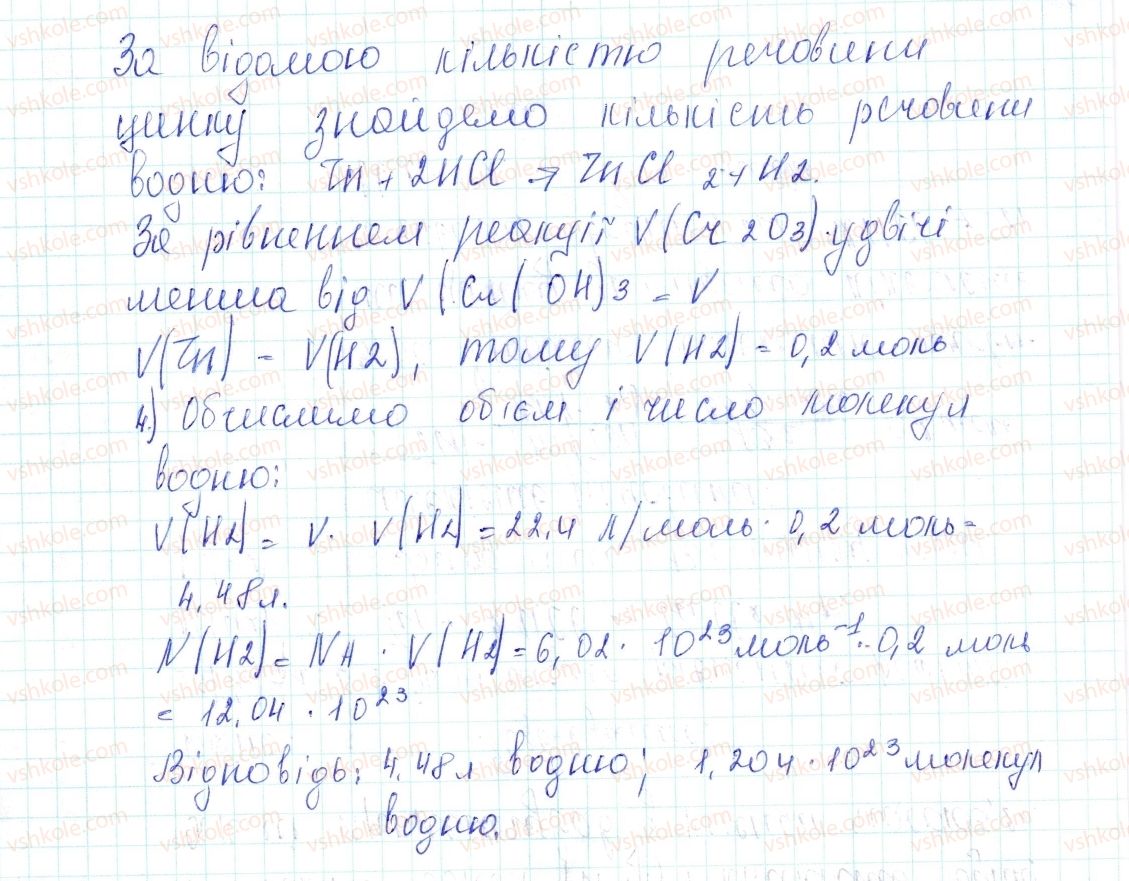 За відомою кількістю речовини
цинку знайдемо кількість речовини
водню: Zn + 2HCl → ZnCl 2 + H2.
За рівненнем реакції V(Cr 2O3) удвічі
менша від V (Cr( OH)3 = V
V(Zn) = V(H2), тому V(H2) = 0,2 моль
4.) Обчислимо об'єм і число молекул
водню:
V(H2) = V · V(H2) = 22.4 л/моль · 0,2 моль =
4.48л.
N(H2) = NA · V(H2) = 6,02 · 10²³ моль⁻¹ · 0,2 моль
= 12.04 · 10²³
Відповідь: 4.48л водню; 1,204 · 10²³ молекул
водню.